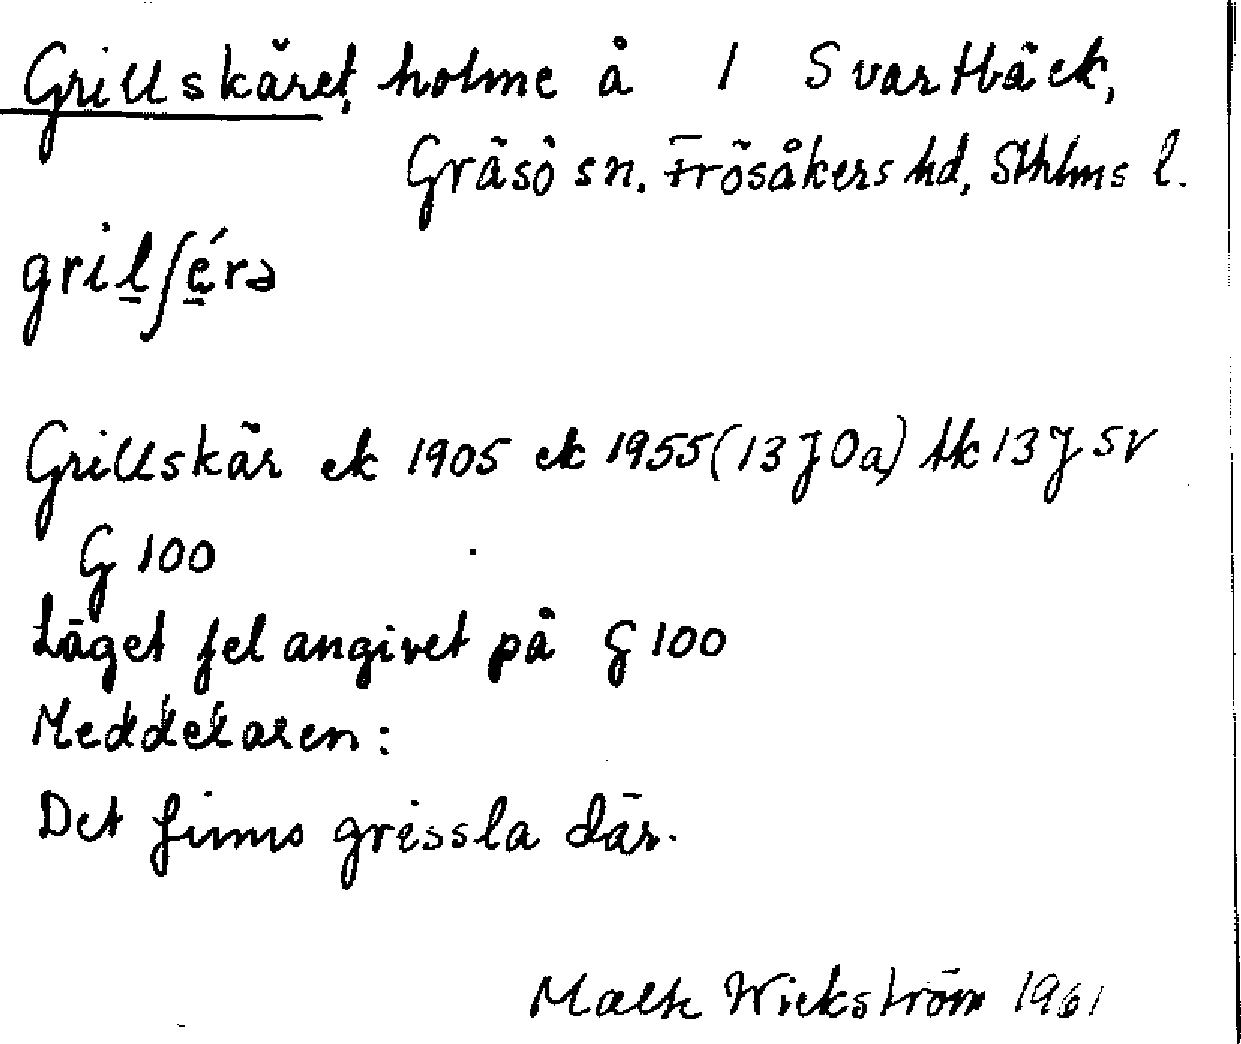 Grillskäret, holme å 1 Svartbäck,
Gräsö sn. Frösåkers hd, Sthlms l.
gril̲ʃé̲rə
Grillskär ek 1905 ek 1955 (13 J 0a) tk 13 J SV
G 100
Läget fel angivet på G 100
Meddelaren:
Det finns grissla där.
Wickström 1961